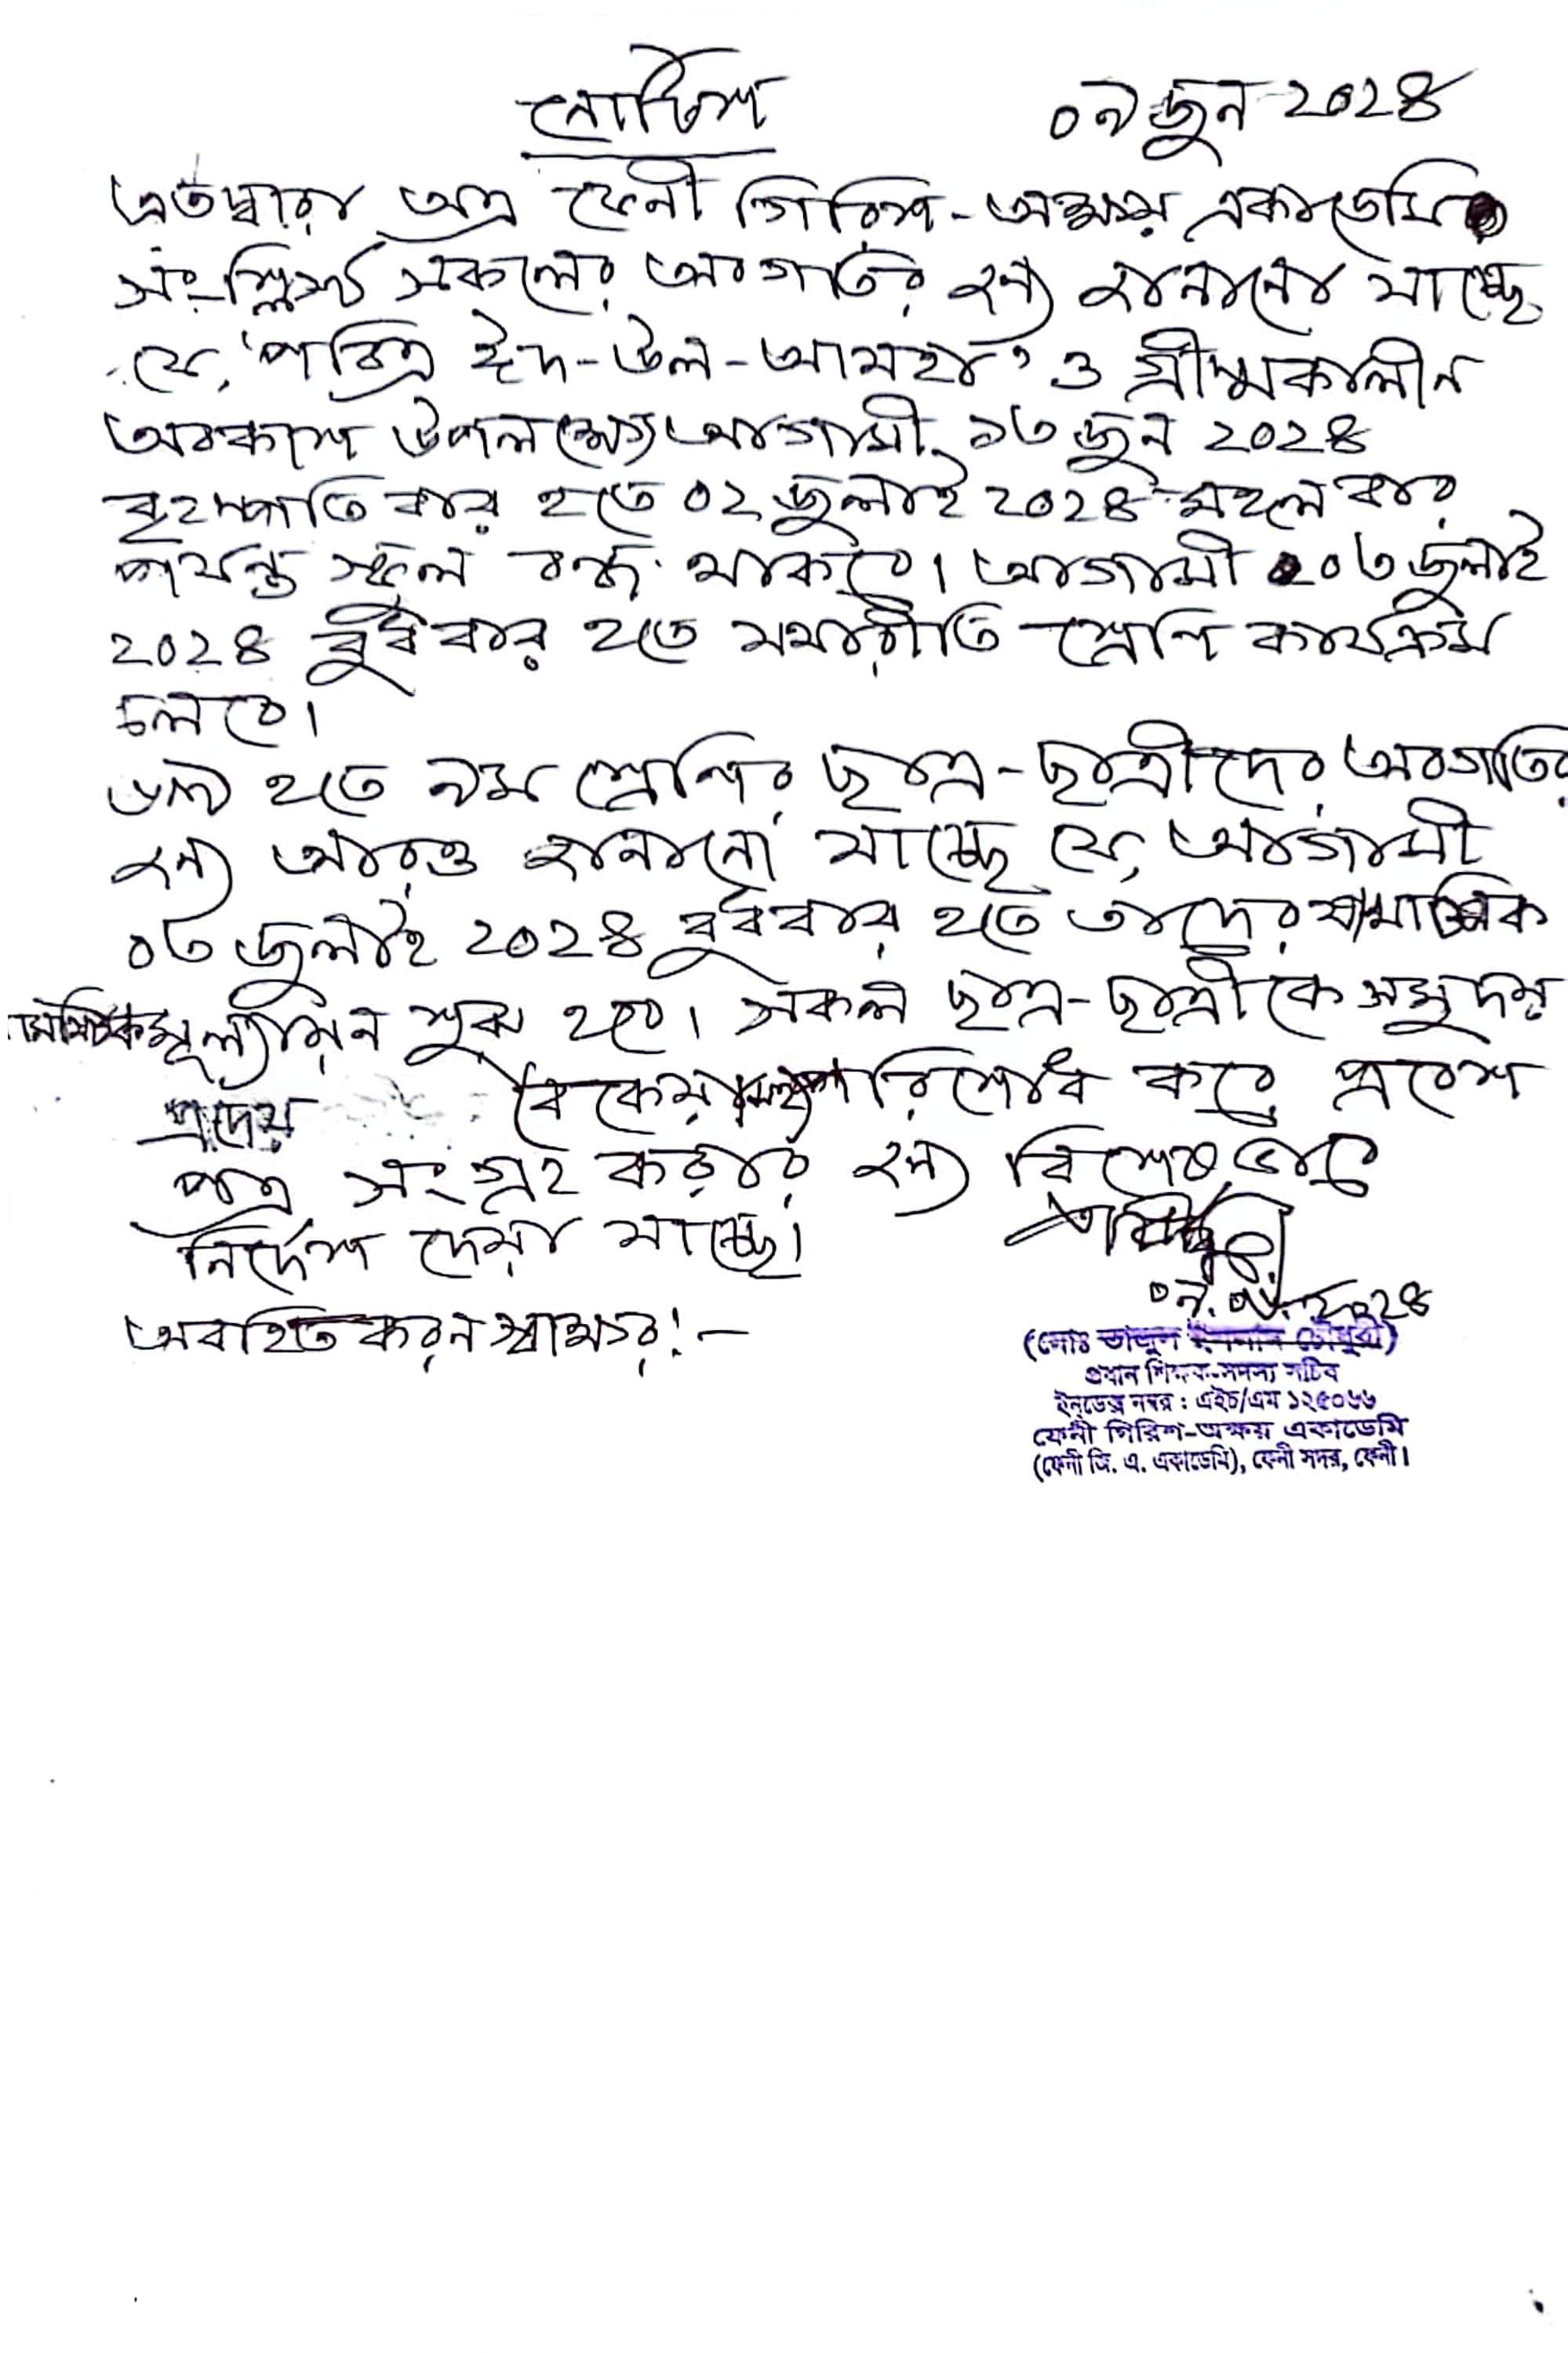 নোটিশ ০৯ জুন ২০২৪
এতদ্বারা অত্র ফেনী গিরিশ-অক্ষয় একাডেমি
সংশ্লিষ্ট সকলের অবগতির জন্য জানানো যাচ্ছে
যে, 'পবিত্র ঈদ-উল-আযহা' ও গ্রীষ্মকালীন
অবকাশ উপলক্ষ্যে আগামী ১৩ জুন ২০২৪
বৃহস্পতিবার হতে ০২ জুলাই ২০২৪ মঙ্গলবার
পর্যন্ত স্কুল বন্ধ থাকবে। আগামী ০৩ জুলাই
২০২৪ বুধবার হতে যথারীতি শ্রেণি কার্যক্রম
চলবে।
৬ষ্ঠ হতে ৯ম শ্রেণির ছাত্র-ছাত্রীদের অবগতির
জন্য আরও জানানো যাচ্ছে যে, আগামী
০৩ জুলাই ২০২৪ বুধবার হতে তাদের ষান্মাসিক
সামষ্টিক মূল্যায়ন শুরু হবে। সকল ছাত্র-ছাত্রীকে সমুদয়
প্রদেয় বকেয়া পরিশোধ করে প্রবেশ
পত্র সংগ্রহ করার জন্য বিশেষভাবে
নির্দেশ দেয়া যাচ্ছে।
০৯.০৬.২০২৪
অবহিতকরন স্বাক্ষর:-
প্রধান শিক্ষক-সদস্য সচিব
ইনডেক্স নম্বর : এইচ/এম ১২৫০৬৬
ফেনী গিরিশ-অক্ষয় একাডেমি
(ফেনী জি. এ. একাডেমি), ফেনী সদর, ফেনী।